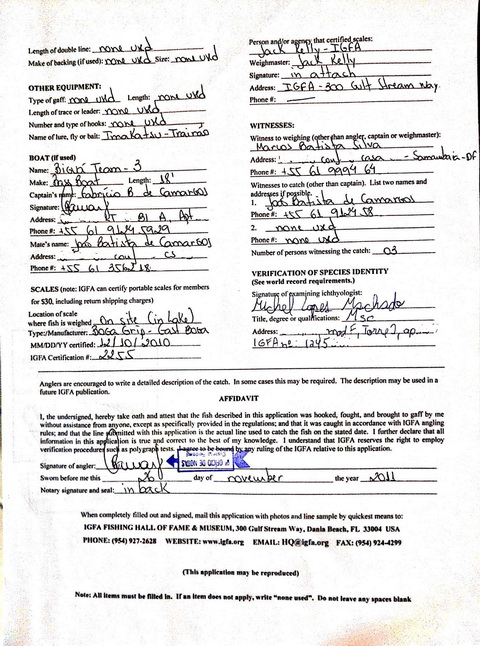 Length of double line: none usd
Make of backing (if used): none usd Size: none usd
OTHER EQUIPMENT:
Type of gaff: none usd Length: none usd
Length of trace or leader: none usd
Number and type of hooks: none usd
Name of lure, fly or bait:
BOAT (if used)
Name: Team - 3
Make: Bass Boat Length: 18'
Captain's name: Fabricio B. de Camargos
Signature:
Address: Bl A, Apt
Phone #: +55 61
Mate's name: João Batista de Camargos
Address:
Phone #: +55 61
SCALES (note: IGFA can certify portable scales for members
for $30, including return shipping charges)
Location of scale
where fish is weighed On site (in lake)
Type:/Manufacturer: Boga Grip - East Boga
MM/DD/YY certified: 12/10/2010
IGFA Certification #: 2255
Person and/or agency that certified scales:
Jack Kelly - IGFA
Weighmaster: Jack Kelly
Signature: in attach
Address: IGFA - 300 Gulf Stream Way.
Phone #:
WITNESSES:
Witness to weighing (other than angler, captain or weighmaster):
Marlos Batista Silva
Address: casa - Samambaia - DF
Phone #: +55 61 9994 64
Witnesses to catch (other than captain). List two names and
addresses if possible.
1. João Batista de Camargos
Phone #: +55 61 58
2. none usd
Phone #: none usd
Number of persons witnessing the catch: 03
VERIFICATION OF SPECIES IDENTITY
(See world record requirements.)
Signature of examining ichthyologist:
Michel Lopes Machado
Title, degree or qualifications: MSc
Address: mod F, Torre 2, ap
IGFA nº: 1245
Anglers are encouraged to write a detailed description of the catch. In some cases this may be required. The description may be used in a
future IGFA publication.
AFFIDAVIT
I, the undersigned, hereby take oath and attest that the fish described in this application was hooked, fought, and brought to gaff by me
without assistance from anyone, except as specifically provided in the regulations; and that it was caught in accordance with IGFA angling
rules; and that the line submitted with this application is the actual line used to catch the fish on the stated date. I further declare that all
information in this application is true and correct to the best of my knowledge. I understand that IGFA reserves the right to employ
verification procedures such as polygraph tests. I agree to be bound by any ruling of the IGFA relative to this application.
Signature of angler:
Sworn before me this 26 day of november the year 2011
Notary signature and seal: in back
When completely filled out and signed, mail this application with photos and line sample by quickest means to:
IGFA FISHING HALL OF FAME & MUSEUM, 300 Gulf Stream Way, Dania Beach, FL 33004 USA
PHONE: (954) 927-2628 WEBSITE: www.igfa.org EMAIL: HQ@igfa.org FAX: (954) 924-4299
(This application may be reproduced)
Note: All items must be filled in. If an item does not apply, write "none used". Do not leave any spaces blank